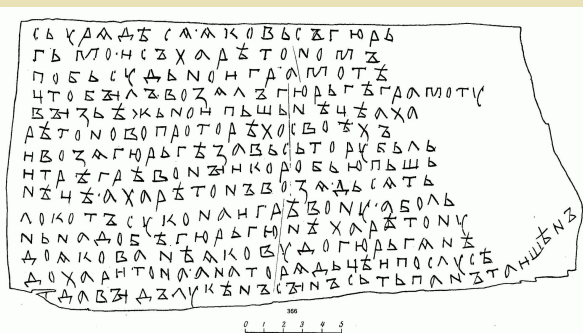 СЬУРѦДѢСѦ·ѦКОВЬСЪГЮРЬ
ГЬМО·ИСЪХАРѢТОНОМЪ
ПОБЬСУДЬНОИГРАМОТѢ
ЧТОБЪІЛЪВОЗѦЛЪГЮРЬГѢГРАМОТУ
ВЪІЗЪѢЖЬНОИПЬШЬНѢЦѢАХА
РѢТОНОВОПРОТОРѢХОСВОѢХЪ
ИВОЗѦГЮРЬГѢЗАВЬСЬТОРУБЬЛЬ
ИТРѢГРѢВОНЪІИКОРОБЬЮПЬШЬ
НѢЦѢ·АХАРѢТОНЪВОЗѦ·ДЬСѦТЬ
ЛОКОТЪСУКОНАИГРѢВОНУ·АБОЛЬ
НЬНАДОБѢ·ГЮРЬГЮНѢХАРѢТОНУ
ДОѦКОВАНѢѦКОВУДОГЮРЬГѦНѢ
ДОХАРИТОНА·АНАТОРѦДЬЦѢИПОСЛУСѢ
ДАВЪІДЪЛУКѢНЪСЪІНЪИСЬТЬПАНЪТАИШѢНЪ
366
0 1 2 3 4 5